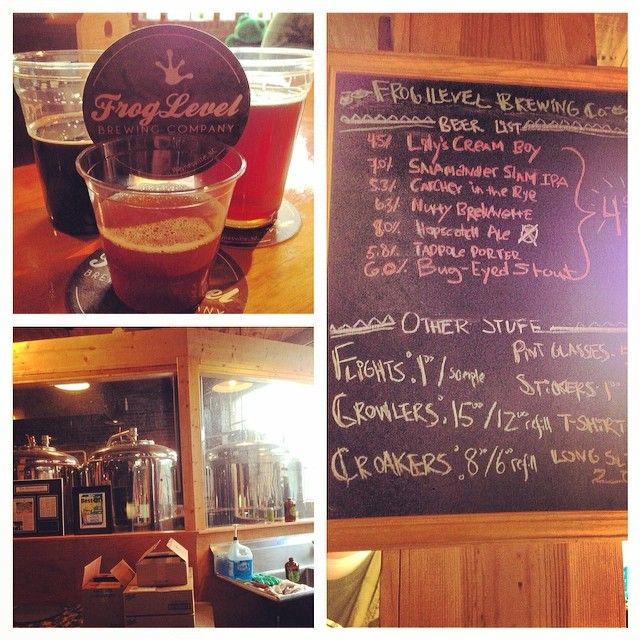 FrogLevel
BREWING COMPANY
FROG LEVEL BREWING CO
BEER LIST
4.5% Lilly's CREAM BOY
7.0% SALAMANDER SLAM IPA
5.3% CATCHER in the Rye
6.3% NUTTY BREWNETTE
8.0% HOPSCOTCH ALE
5.8% TADPOLE PORTER
6.0% BUG-EYED STOUT
4
OTHER STUFF
FLIGHTS: 1⁰⁰/sample
PINT GLASSES
STICKERS 1⁰⁰
GROWLERS: 15⁰⁰/12⁰⁰ refill
T-SHIRT
CROAKERS: 8⁰⁰/6⁰⁰ refill
LONG SL